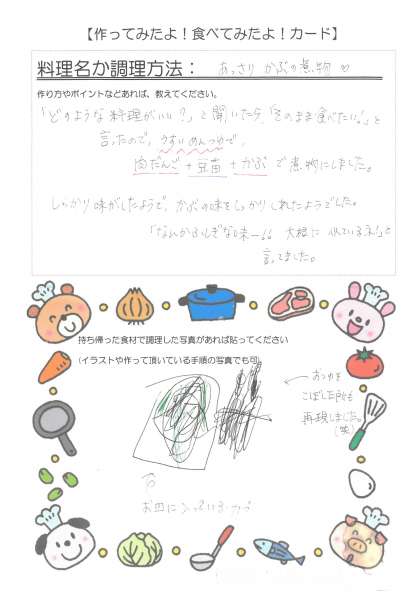 【作ってみたよ！食べてみたよ！カード】
料理名か調理方法： あっさり かぶの煮物 ♡
作り方やポイントなどあれば、教えてください。
「どのような料理がいい？」と聞いたら、「そのまま食べたい。」と
言ったので、うすいめんつゆで、
肉だんご＋豆苗＋かぶ で煮物にしました。
しっかり味がしたようで、かぶの味をしっかりしれたようでした。
「なんかふしぎな味ー。大根に似ているネ！」と
言ってました。
持ち帰った食材で調理した写真があれば貼ってください
（イラストや作って頂いている手順の写真でも可）
← おつゆを
こぼした所も
再現しました。
（笑）
お皿に入っているかぶ